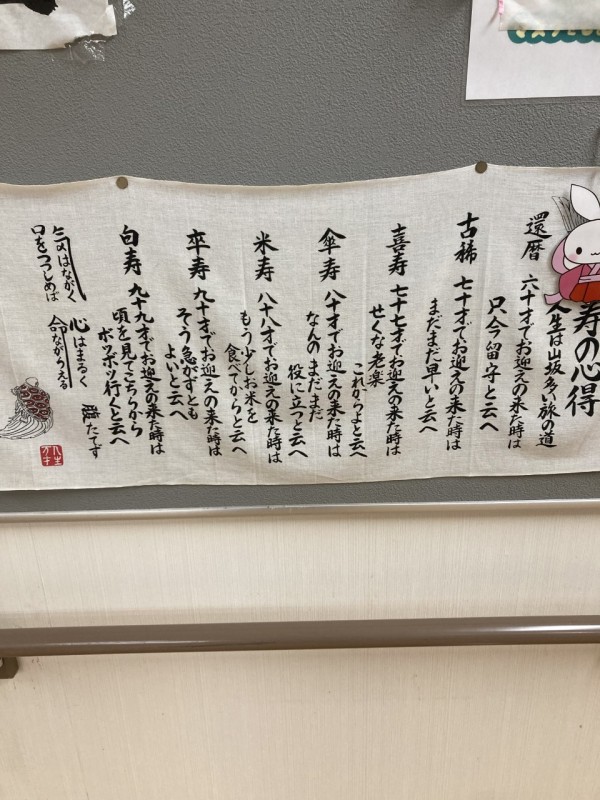 寿の心得
人生は山坂多い旅の道
還暦 六十才でお迎えの来た時は
只今留守と云へ
古稀 七十才でお迎えの来た時は
まだまだ早いと云へ
喜寿 七十七才でお迎えの来た時は
せくな老楽
これからよと云へ
傘寿 八十才でお迎えの来た時は
なんのまだまだ
役に立つと云へ
米寿 八十八才でお迎えの来た時は
もう少しお米を
食べてからと云へ
卒寿 九十才でお迎えの来た時は
そう急がずとも
よいと云へ
白寿 九十九才でお迎えの来た時は
頃を見てこちらから
ボツボツ行くと云へ
気はながく 心はまるく 腹たてず
口をつつしめば 命ながらえる